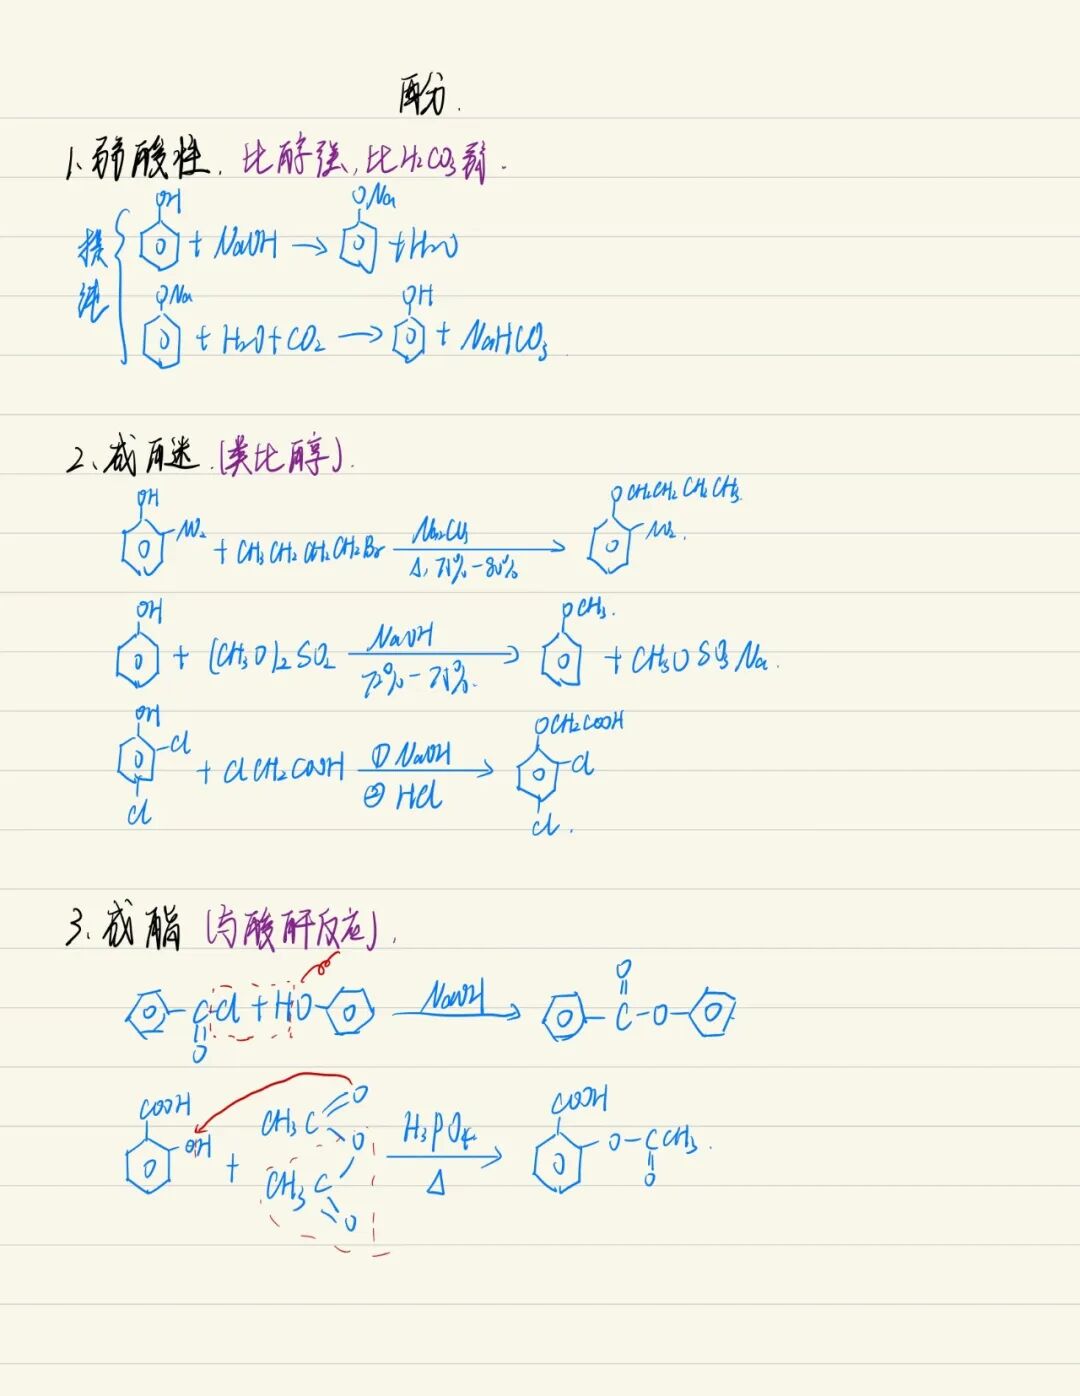 酚.
1、弱酸性. 比醇强,比H₂CO₃弱.
提纯
OH + NaOH → ONa + H₂O
ONa + H₂O + CO₂ → OH + NaHCO₃
2、成醚.(类比醇).
OH NO₂ + CH₃CH₂CH₂CH₂Br Na₂CO₃ Δ, 75%-80% → OCH₂CH₂CH₂CH₃ NO₂.
OH + (CH₃O)₂SO₂ NaOH 72%-75%. → OCH₃. + CH₃OSO₃Na.
OH Cl Cl + ClCH₂COOH ①NaOH ②HCl → OCH₂COOH Cl Cl.
3、成酯(与酸酐反应).
C O Cl + HO NaOH → O C-O-
COOH OH + CH₃C O O CH₃C O H₃PO₄ Δ → COOH O-CCH₃ O.